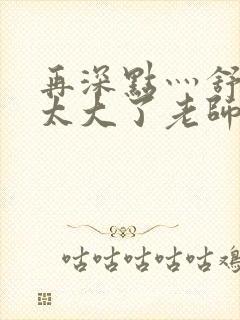 再深點灬舒
太大了老師
咕咕咕咕咕雞